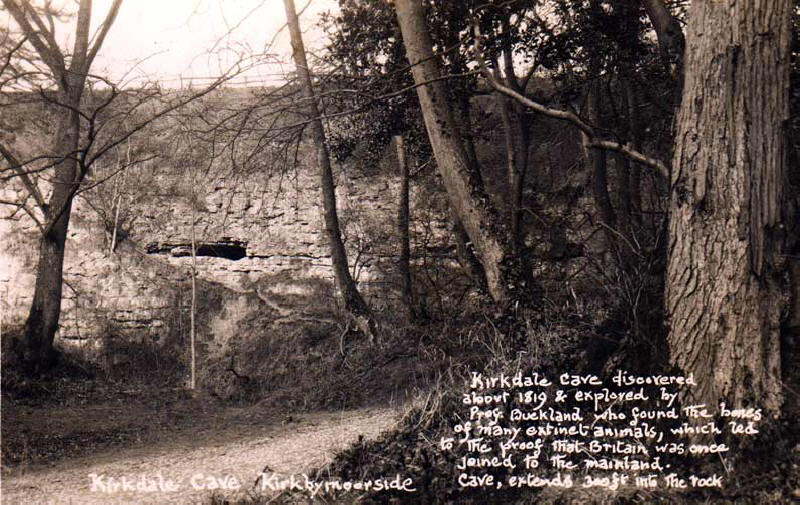 Kirkdale Cave discovered
about 1819 & explored by
Prof. Buckland who found the bones
of many extinct animals, which led
to the proof that Britain was once
joined to the mainland.
Cave, extends 300ft into the rock
Kirkdale Cave Kirkbymoorside